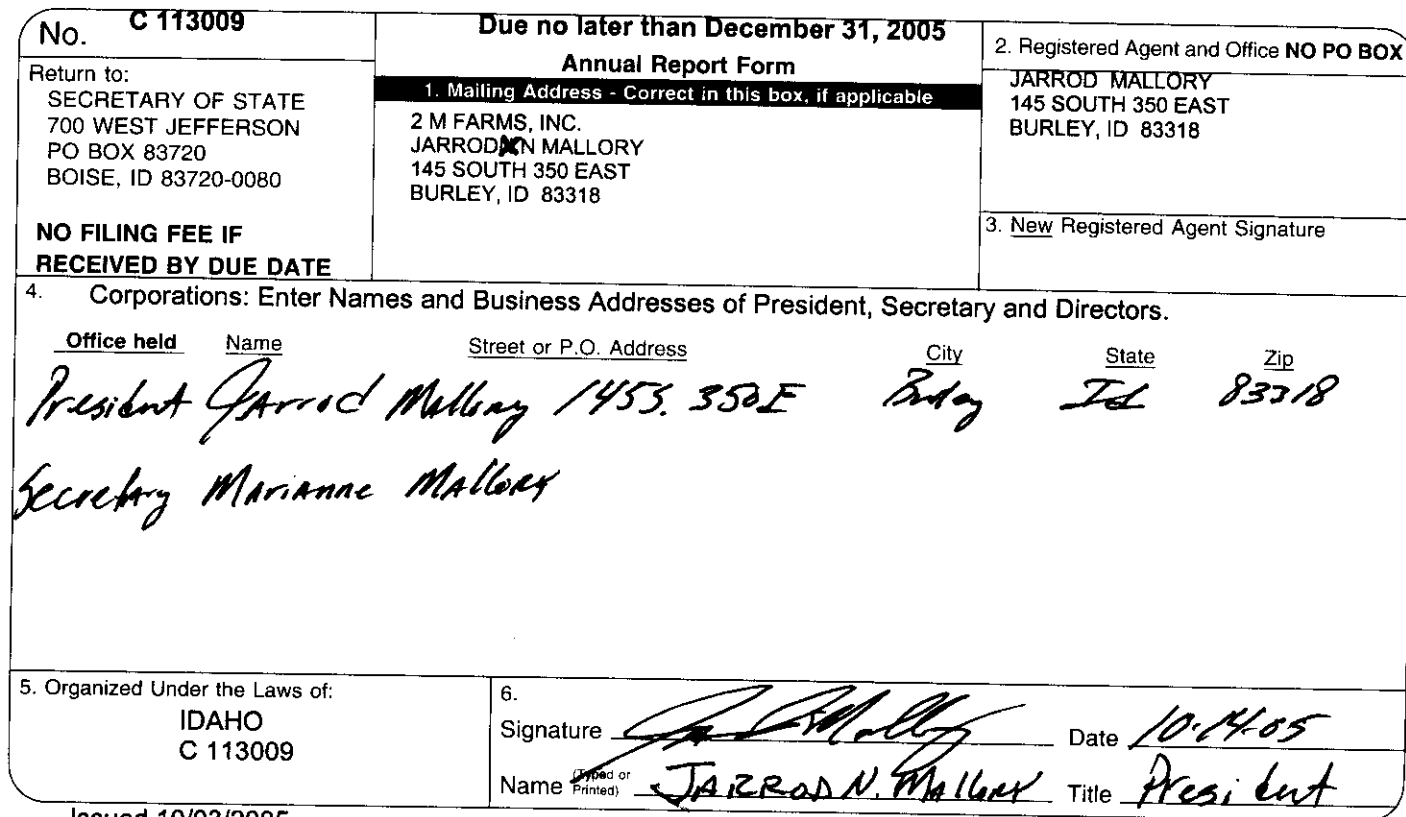 No. C 113009
Return to:
SECRETARY OF STATE
700 WEST JEFFERSON
PO BOX 83720
BOISE, ID 83720-0080
NO FILING FEE IF
RECEIVED BY DUE DATE
Due no later than December 31, 2005
Annual Report Form
1. Mailing Address - Correct in this box, if applicable
2 M FARMS, INC.
JARROD N MALLORY
145 SOUTH 350 EAST
BURLEY, ID 83318
2. Registered Agent and Office NO PO BOX
JARROD MALLORY
145 SOUTH 350 EAST
BURLEY, ID 83318
3. New Registered Agent Signature
4. Corporations: Enter Names and Business Addresses of President, Secretary and Directors.
Office held Name Street or P.O. Address City State Zip
President Jarrod Mallory 145 S. 350 E Burley Id 83318
Secretary Marianne Mallory
5. Organized Under the Laws of:
IDAHO
C 113009
6.
Signature Date 10-14-05
Name (Typed or Printed) JARROD N. Mallory Title President
Issued 10/03/2005